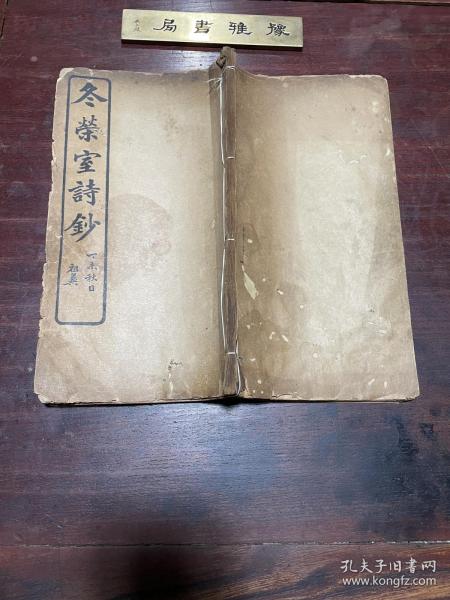 豫雅書局
冬榮室詩鈔
丁未秋日
祖翼
孔夫子旧书网
www.kongfz.com